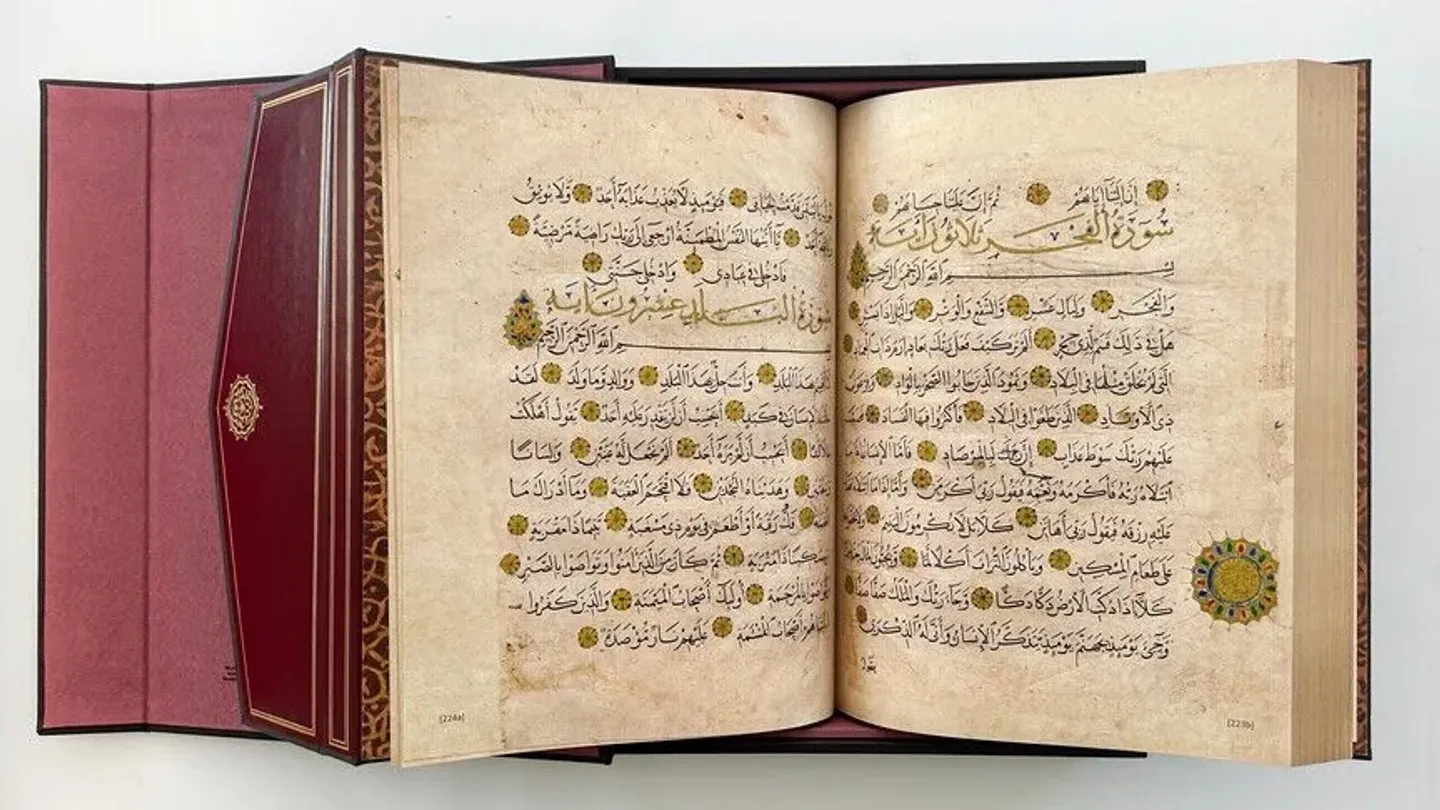 إِنَّ إِلَيْنَا إِيَابَهُمْ ثُمَّ إِنَّ عَلَيْنَا حِسَابَهُمْ
سُورَةُ الْفَجْرِ ثَلَاثُونَ آيَة
بِسْمِ اللَّهِ الرَّحْمَنِ الرَّحِيمِ
وَالْفَجْرِ وَلَيَالٍ عَشْرٍ وَالشَّفْعِ وَالْوَتْرِ وَاللَّيْلِ إِذَا يَسْرِ
هَلْ فِي ذَلِكَ قَسَمٌ لِذِي حِجْرٍ أَلَمْ تَرَ كَيْفَ فَعَلَ رَبُّكَ بِعَادٍ إِرَمَ ذَاتِ الْعِمَادِ
الَّتِي لَمْ يُخْلَقْ مِثْلُهَا فِي الْبِلَادِ وَثَمُودَ الَّذِينَ جَابُوا الصَّخْرَ بِالْوَادِ وَفِرْعَوْنَ
ذِي الْأَوْتَادِ الَّذِينَ طَغَوْا فِي الْبِلَادِ فَأَكْثَرُوا فِيهَا الْفَسَادَ فَصَبَّ
عَلَيْهِمْ رَبُّكَ سَوْطَ عَذَابٍ إِنَّ رَبَّكَ لَبِالْمِرْصَادِ فَأَمَّا الْإِنْسَانُ إِذَا مَا
ابْتَلَاهُ رَبُّهُ فَأَكْرَمَهُ وَنَعَّمَهُ فَيَقُولُ رَبِّي أَكْرَمَنِ وَأَمَّا إِذَا مَا ابْتَلَاهُ
عَلَيْهِ رِزْقَهُ فَيَقُولُ رَبِّي أَهَانَنِ كَلَّا بَلْ لَا تُكْرِمُونَ الْيَتِيمَ
عَلَى طَعَامِ الْمِسْكِينِ وَتَأْكُلُونَ التُّرَاثَ أَكْلًا لَمًّا وَتُحِبُّونَ الْمَالَ
كَلَّا إِذَا دُكَّتِ الْأَرْضُ دَكًّا دَكًّا وَجَاءَ رَبُّكَ وَالْمَلَكُ صَفًّا صَفًّا
وَجِيءَ يَوْمَئِذٍ بِجَهَنَّمَ يَوْمَئِذٍ يَتَذَكَّرُ الْإِنْسَانُ وَأَنَّى لَهُ الذِّكْرَى
[223b]
قَدَّمْتُ لِحَيَاتِي فَيَوْمَئِذٍ لَا يُعَذِّبُ عَذَابَهُ أَحَدٌ وَلَا يُوثِقُ
أَحَدٌ يَا أَيَّتُهَا النَّفْسُ الْمُطْمَئِنَّةُ ارْجِعِي إِلَى رَبِّكِ رَاضِيَةً مَرْضِيَّةً
فَادْخُلِي فِي عِبَادِي وَادْخُلِي جَنَّتِي
سُورَةُ الْبَلَدِ عِشْرُونَ آيَة
بِسْمِ اللَّهِ الرَّحْمَنِ الرَّحِيمِ
بِهَذَا الْبَلَدِ وَأَنْتَ حِلٌّ بِهَذَا الْبَلَدِ وَوَالِدٍ وَمَا وَلَدَ لَقَدْ
الْإِنْسَانَ فِي كَبَدٍ أَيَحْسَبُ أَنْ لَنْ يَقْدِرَ عَلَيْهِ أَحَدٌ يَقُولُ أَهْلَكْتُ
مَالًا لُبَدًا أَيَحْسَبُ أَنْ لَمْ يَرَهُ أَحَدٌ أَلَمْ نَجْعَلْ لَهُ عَيْنَيْنِ وَلِسَانًا
وَشَفَتَيْنِ وَهَدَيْنَاهُ النَّجْدَيْنِ فَلَا اقْتَحَمَ الْعَقَبَةَ وَمَا أَدْرَاكَ مَا
الْعَقَبَةُ فَكُّ رَقَبَةٍ أَوْ إِطْعَامٌ فِي يَوْمٍ ذِي مَسْغَبَةٍ يَتِيمًا ذَا مَقْرَبَةٍ
مِسْكِينًا ذَا مَتْرَبَةٍ ثُمَّ كَانَ مِنَ الَّذِينَ آمَنُوا وَتَوَاصَوْا بِالصَّبْرِ
وَتَوَاصَوْا بِالْمَرْحَمَةِ أُولَئِكَ أَصْحَابُ الْمَيْمَنَةِ وَالَّذِينَ كَفَرُوا
هُمْ أَصْحَابُ الْمَشْأَمَةِ عَلَيْهِمْ نَارٌ مُؤْصَدَةٌ
[224a]